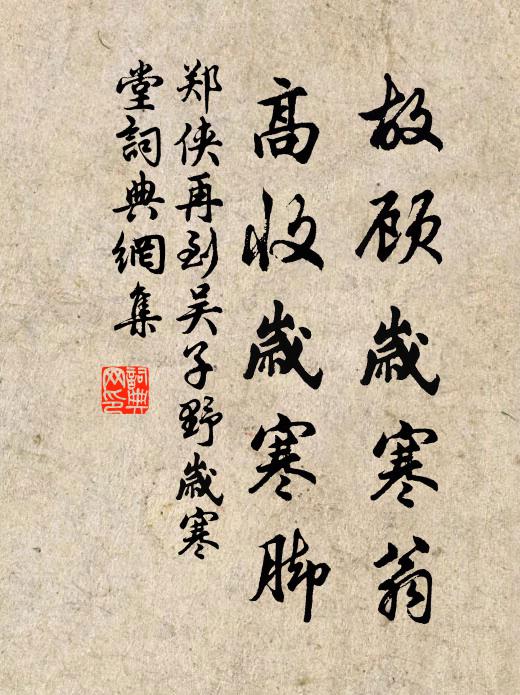 故顾歲寒翁
高收歲寒脚
郑侠再到吴子野歲寒
堂詞典網集
詞典网印